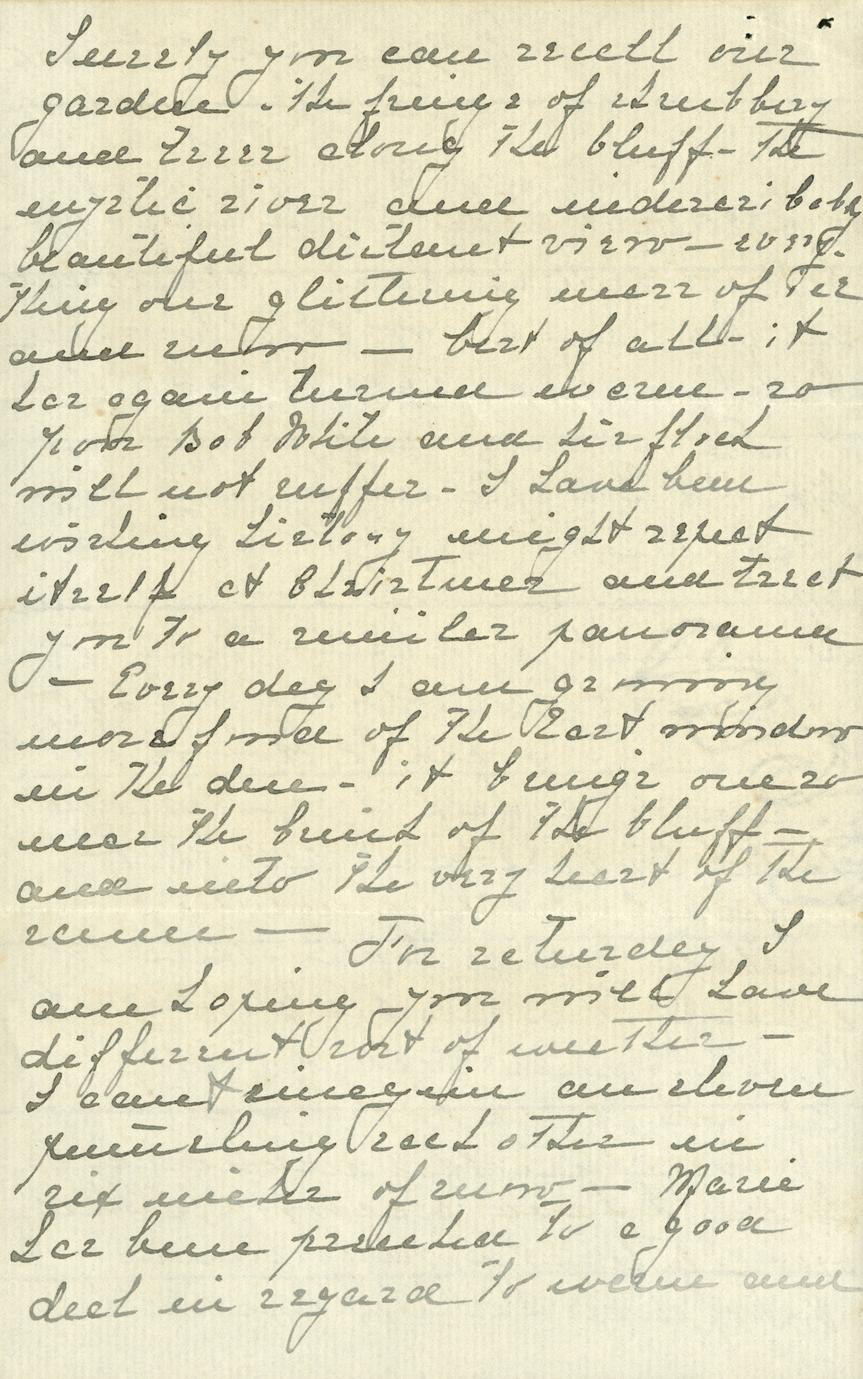 Surely you can recall our
garden - the fringe of shrubbery
and trees along the bluff - the
mystic river and indescribably
beautiful distant view - every-
thing one glistening mass of ice
and snow — best of all - it
has again turned warm - so
your Bob White and his flock
will not suffer - I have been
wishing history might repeat
itself at Christmas and treat
you to a similar panorama
- Every day I am growing
more fond of the East window
in the den - it brings one so
near the brink of the bluff -
and into the very heart of the
scene — For saturday I
am hoping you will have
different sort of weather -
I cant imagin an eleven
punshing each other in
six inches of snow - Marie
has been preached to a good
deal in regard to warm and